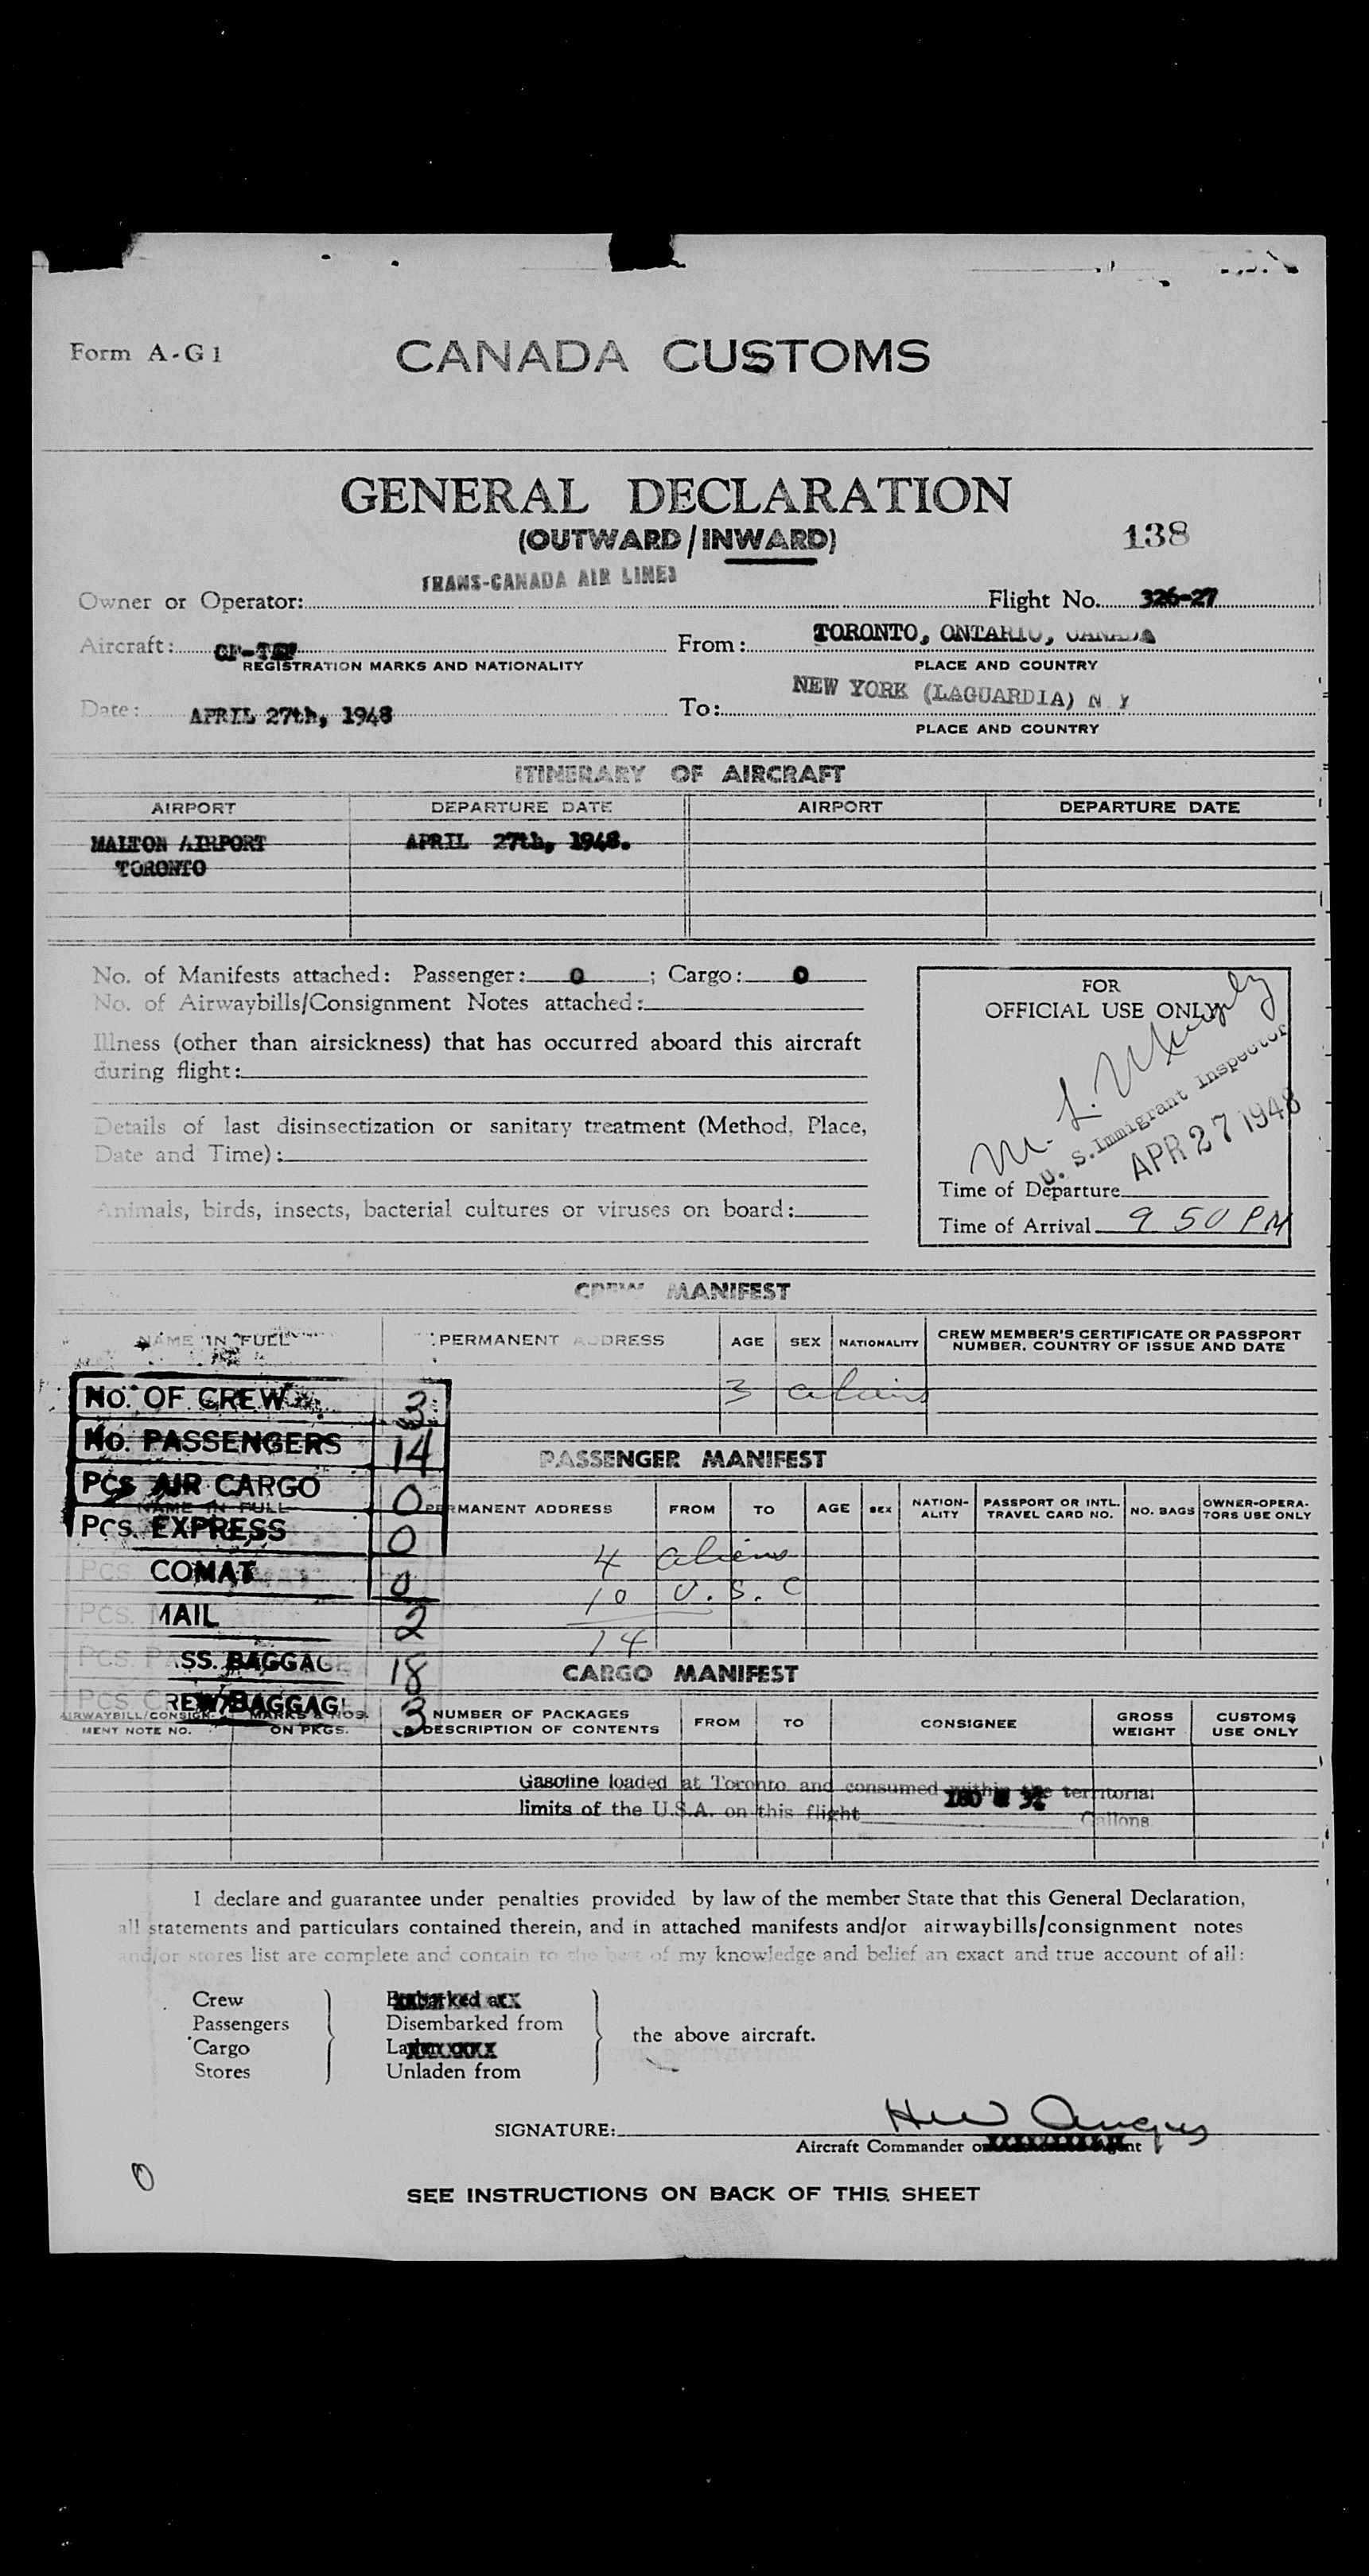 Form A-G1
CANADA CUSTOMS
GENERAL DECLARATION
(OUTWARD/INWARD)
138
TRANS-CANADA AIR LINES
Owner or Operator: Flight No. 326-27
Aircraft: From: TORONTO, ONTARIO, CANADA
REGISTRATION MARKS AND NATIONALITY PLACE AND COUNTRY
NEW YORK (LAGUARDIA) N Y
Date: APRIL 27th, 1948 To:
PLACE AND COUNTRY
ITINERARY OF AIRCRAFT
AIRPORT DEPARTURE DATE AIRPORT DEPARTURE DATE
MALTON AIRPORT APRIL 27th, 1948.
TORONTO
No. of Manifests attached: Passenger: 0 ; Cargo: 0
No. of Airwaybills/Consignment Notes attached:
Illness (other than airsickness) that has occurred aboard this aircraft
during flight:
Details of last disinsectization or sanitary treatment (Method, Place,
Date and Time):
Animals, birds, insects, bacterial cultures or viruses on board:
FOR
OFFICIAL USE ONLY
M. L. Murphy
U. S. Immigrant Inspector
APR 27 1948
Time of Departure
Time of Arrival 9 50 PM
CREW MANIFEST
NAME IN FULL PERMANENT ADDRESS AGE SEX NATIONALITY CREW MEMBER'S CERTIFICATE OR PASSPORT
NUMBER, COUNTRY OF ISSUE AND DATE
3 aliens
No. OF CREW 3
No. PASSENGERS 14
PCS AIR CARGO 0
PCS. EXPRESS 0
PCS. COMAT 0
PCS. MAIL 2
PCS. PASS. BAGGAGE 18
PCS. CREW BAGGAGE 3
PASSENGER MANIFEST
NAME IN FULL PERMANENT ADDRESS FROM TO AGE SEX NATION-
ALITY PASSPORT OR INTL.
TRAVEL CARD NO. NO. BAGS OWNER-OPERA-
TORS USE ONLY
4 aliens
10 U.S.C
14
CARGO MANIFEST
AIRWAYBILL/CONSIGN-
MENT NOTE NO. MARKS & NOS.
ON PKGS. NUMBER OF PACKAGES
DESCRIPTION OF CONTENTS FROM TO CONSIGNEE GROSS
WEIGHT CUSTOMS
USE ONLY
Gasoline loaded at Toronto and consumed within the territorial
limits of the U.S.A. on this flight Gallons
I declare and guarantee under penalties provided by law of the member State that this General Declaration,
all statements and particulars contained therein, and in attached manifests and/or airwaybills/consignment notes
and/or stores list are complete and contain to the best of my knowledge and belief an exact and true account of all:
Crew Embarked at
Passengers Disembarked from
Cargo the above aircraft.
Stores Unladen from
SIGNATURE: HW Angus
Aircraft Commander or
0
SEE INSTRUCTIONS ON BACK OF THIS SHEET